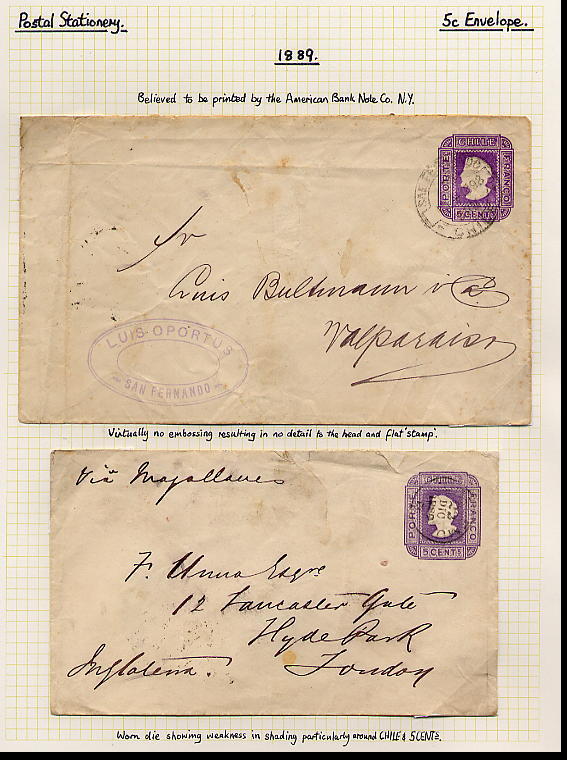 Postal Stationery.
5c Envelope.
1889.
Believed to be printed by the American Bank Note Co. N.Y.
CHILE
PORTE
FRANCO
5 CENTS
Sr
Luis Bultmann i Ca
Valparaiso
LUIS OPORTUS
SAN FERNANDO
Virtually no embossing resulting in no detail to the head and flat 'stamp'.
Via Magallanes
PORTE
FRANCO
5 CENTS
DIC
F. Unna Esqre
12 Lancaster Gate
Hyde Park
Inglaterra. London
Worn die showing weakness in shading particularly around CHILE & 5 CENTS.